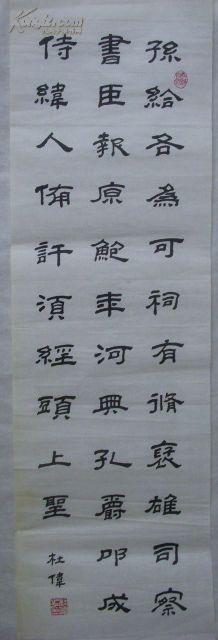 孫給各為可祠有脩褒雄司察
書臣報原鮑年河典孔爵叩成
侍緯人備許須經頭上聖
杜偉